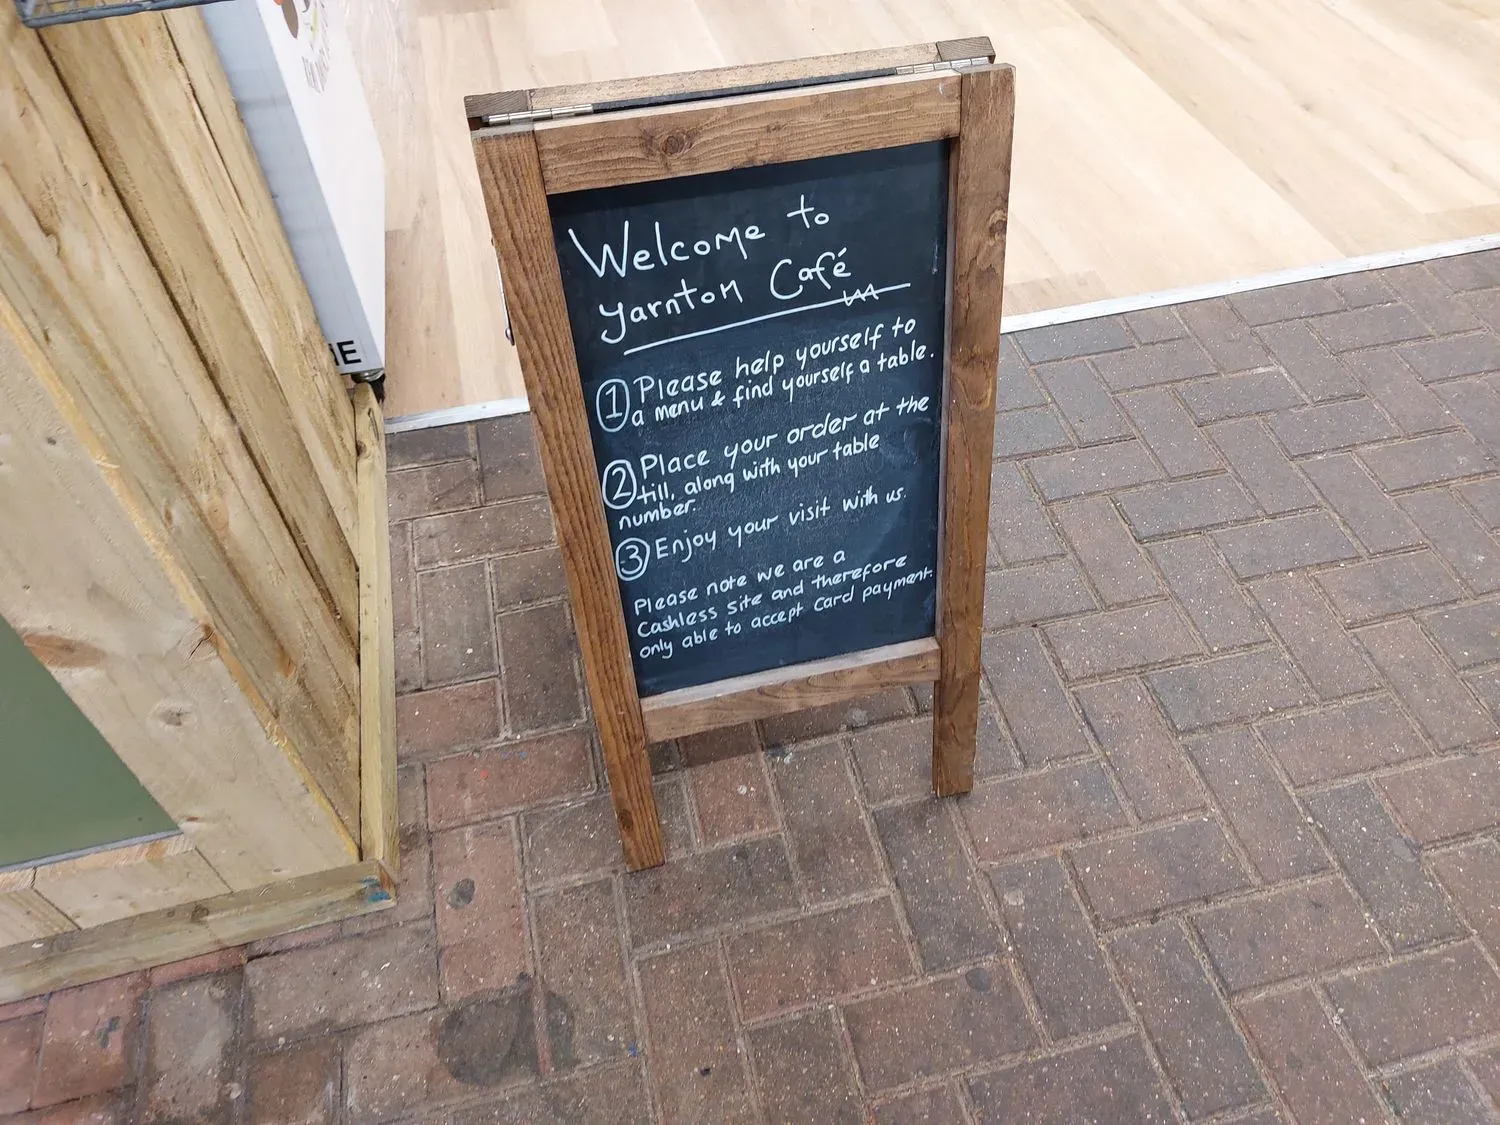 Welcome to
Yarnton Café
1 Please help yourself to
a menu & find yourself a table.
2 Place your order at the
till, along with your table
number.
3 Enjoy your visit with us.
Please note we are a
Cashless site and therefore
only able to accept card payment.
IE